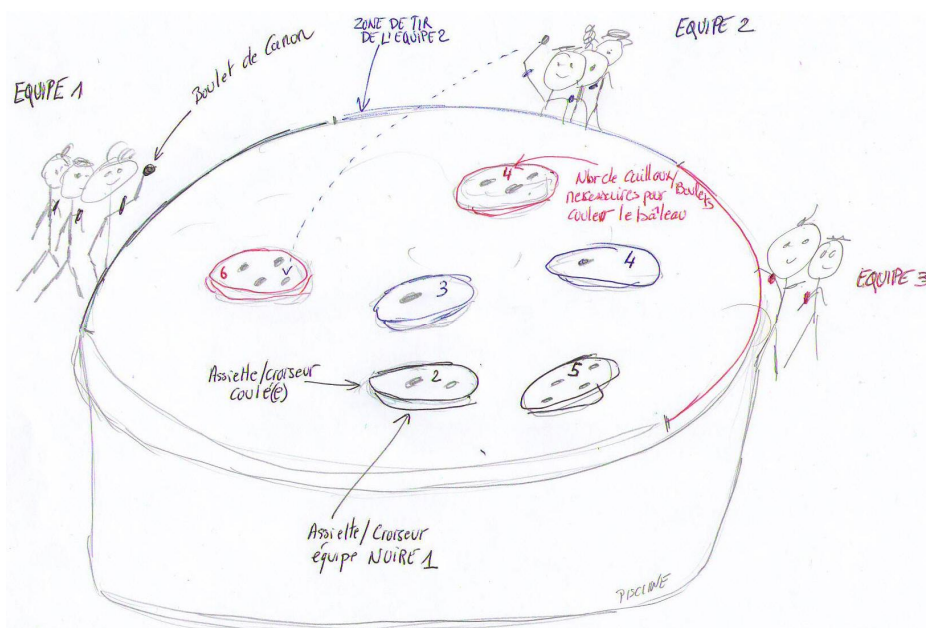 EQUIPE 1
Boulet de Canon
ZONE DE TIR
DE L'EQUIPE 2
EQUIPE 2
4
Nbr de Cailloux/Boulets
necessaires pour
couler le bâteau
EQUIPE 3
6
3
4
Assiette/croiseur
coulé(e)
2
5
Assiette/Croiseur
équipe NOIRE 1
PISCINE